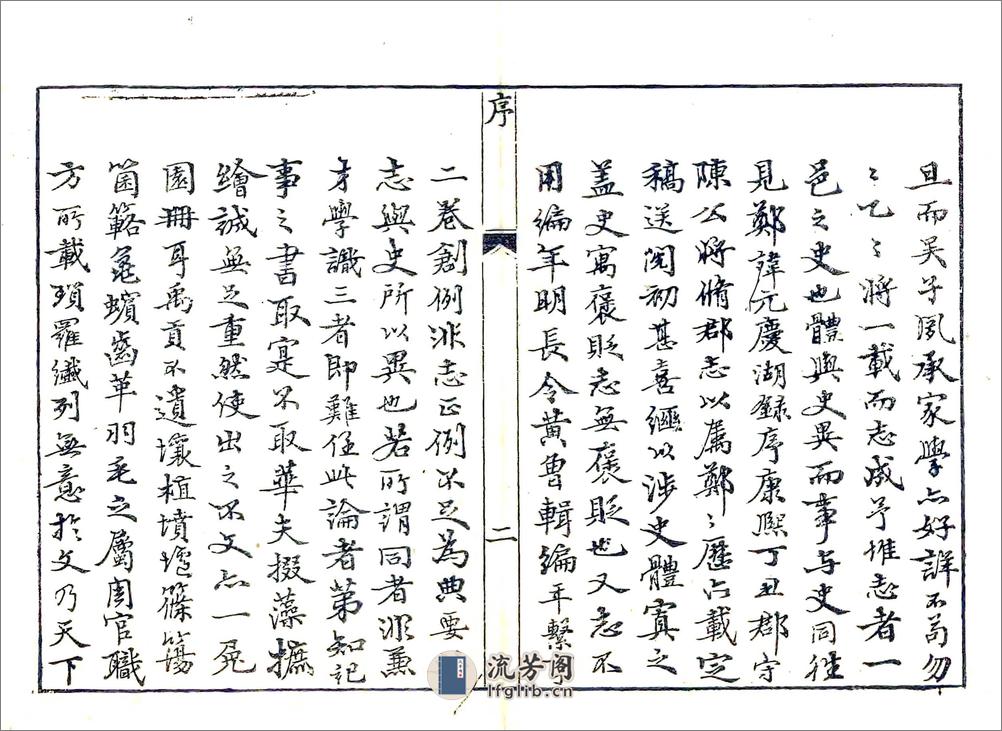 旦而吴子夙承家學亦好詳不苟勿
〻乙〻將一載而志成予惟志者一
邑之史也體與史異而事与史同往
見鄭諱元慶湖録序康熙丁丑郡守
陳公將脩郡志以属鄭〻歷六載定
稿送閱初甚喜繼以涉史體寘之
盖史寓褒貶志無褒貶也又志不
用編年明長令黄魯輯編年繫
二卷創例非志正例不足為典要
志與史所以異也若所謂同者非兼
才學識三者即難任此論者第知記
事之書取寔不取華夫掇藻摭
繪誠無足重然使出之不文亦一兎
園冊耳禹貢不遺壤植墳壚篠簜
箘簵龜蠙齒革羽毛之屬周官職
方所載瑣羅纖列無意於文乃天下
序
二
流芳阁
lfglib.cn